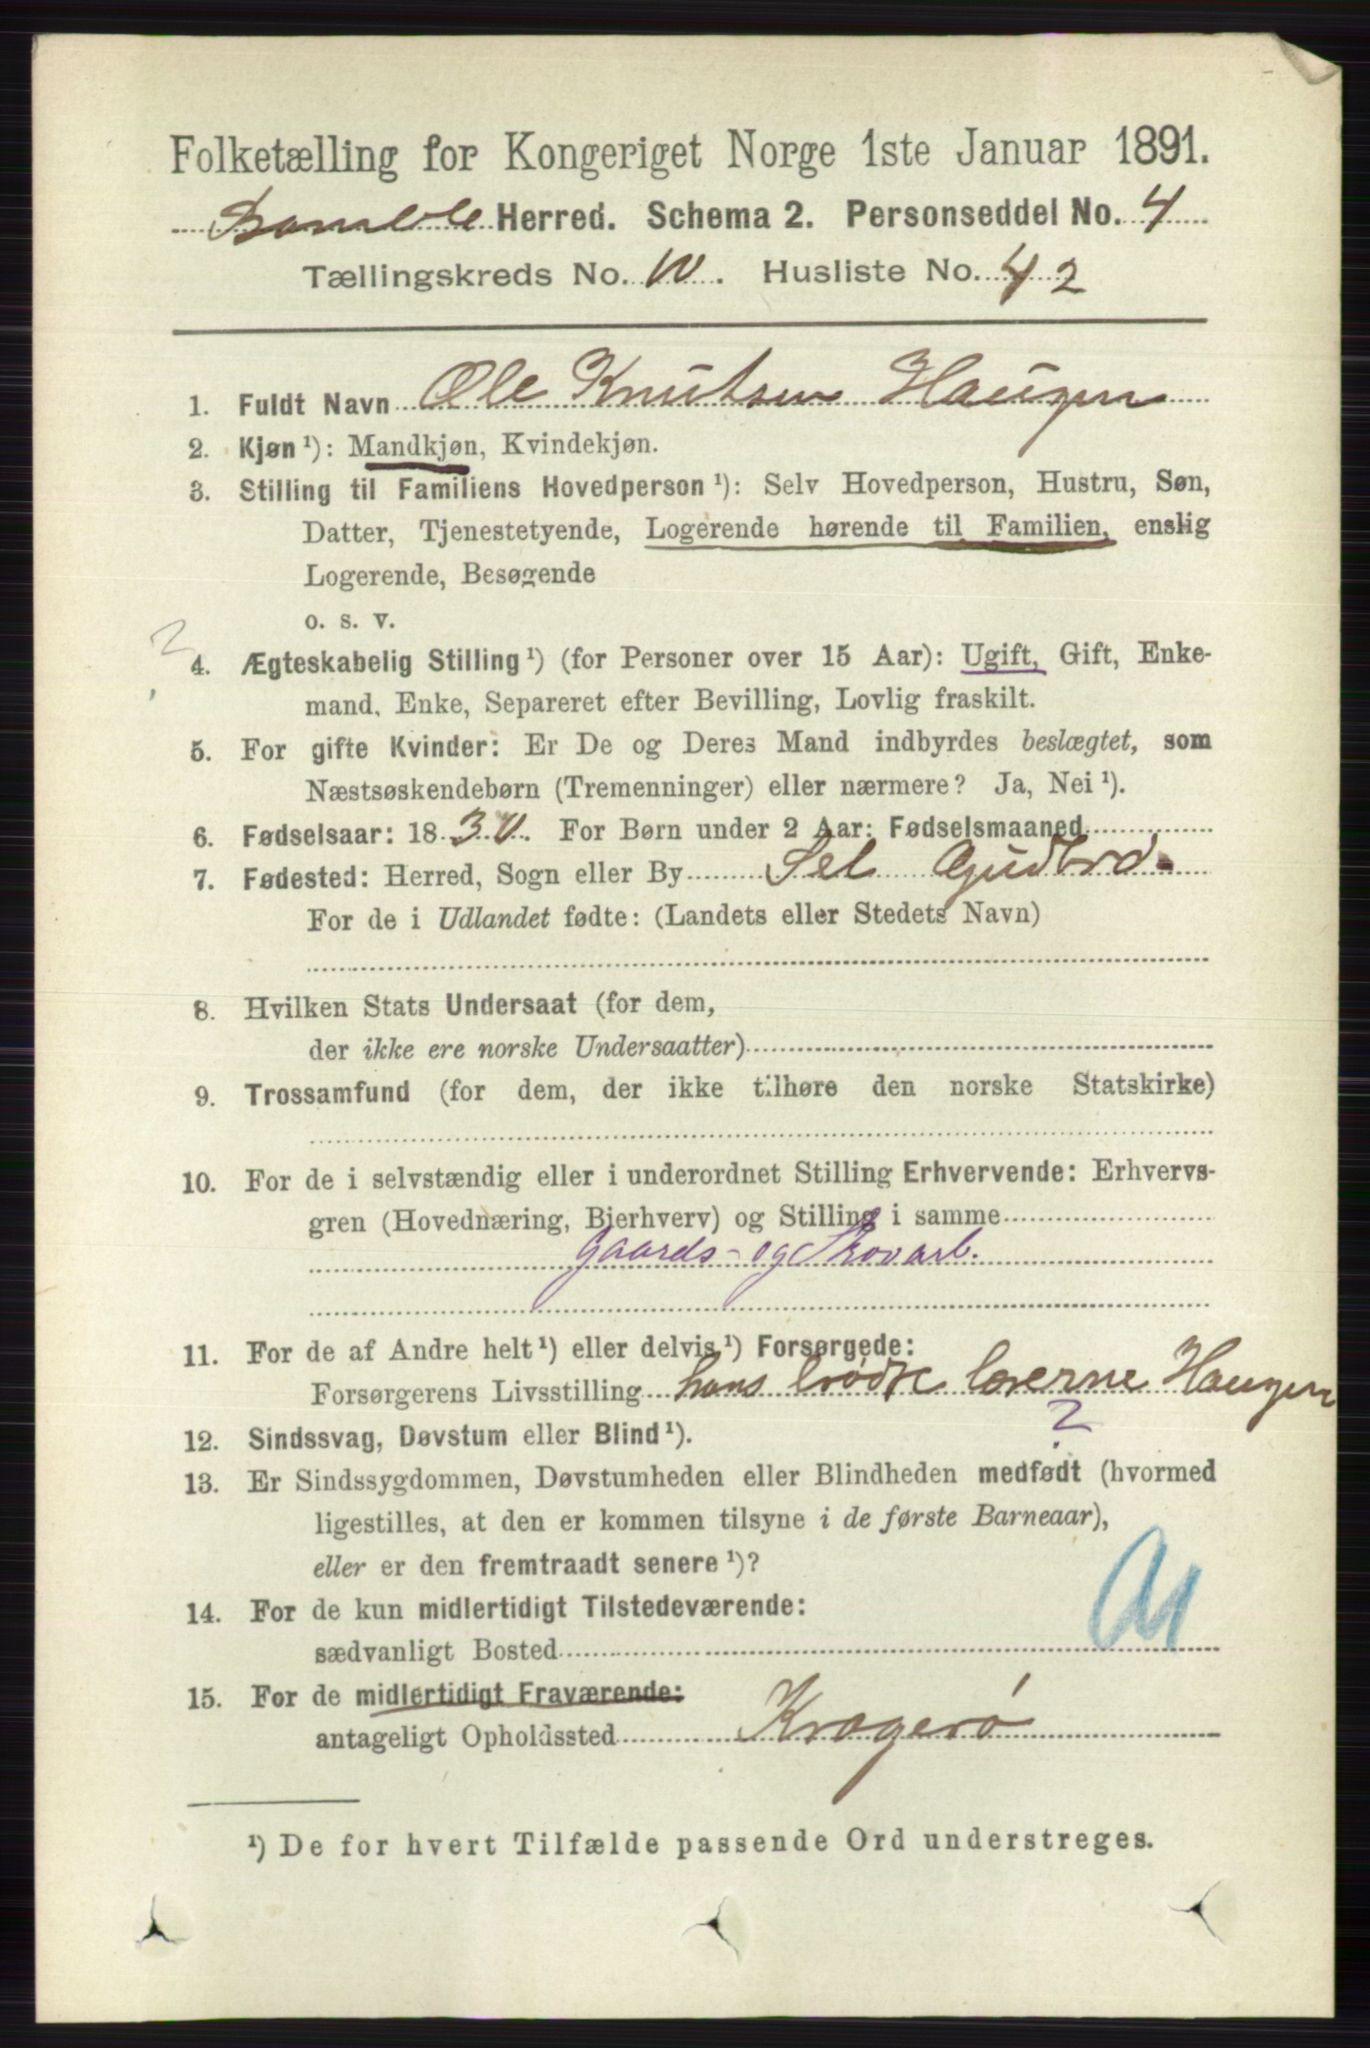 Folketælling for Kongeriget Norge 1ste Januar 1891.
Bamble Herred. Schema 2. Personseddel No. 4
Tællingskreds No. 10. Husliste No. 42
1. Fuldt Navn Ole Knutsen Haugen
2. Kjøn ¹): Mandkjøn, Kvindekjøn.
3. Stilling til Familiens Hovedperson ¹): Selv Hovedperson, Hustru, Søn,
Datter, Tjenestetyende, Logerende hørende til Familien, enslig
Logerende, Besøgende
o. s. v.
2
4. Ægteskabelig Stilling ¹) (for Personer over 15 Aar): Ugift, Gift, Enke-
mand, Enke, Separeret efter Bevilling, Lovlig fraskilt.
5. For gifte Kvinder: Er De og Deres Mand indbyrdes beslægtet, som
Næstsøskendebørn (Tremenninger) eller nærmere? Ja, Nei ¹).
6. Fødselsaar: 1830. For Børn under 2 Aar: Fødselsmaaned
7. Fødested: Herred, Sogn eller By Sel Gudbrd.
For de i Udlandet fødte: (Landets eller Stedets Navn)
8. Hvilken Stats Undersaat (for dem,
der ikke ere norske Undersaatter)
9. Trossamfund (for dem, der ikke tilhøre den norske Statskirke)
10. For de i selvstændig eller i underordnet Stilling Erhvervende: Erhvervs-
gren (Hovednæring, Bierhverv) og Stilling i samme
Gaards- og Skovarb.
11. For de af Andre helt ¹) eller delvis ¹) Forsørgede:
Forsørgerens Livsstilling hans brødre Haugen
?
12. Sindssvag, Døvstum eller Blind ¹).
13. Er Sindssygdommen, Døvstumheden eller Blindheden medfødt (hvormed
ligestilles, at den er kommen tilsyne i de første Barneaar),
eller er den fremtraadt senere ¹)?
14. For de kun midlertidigt Tilstedeværende:
sædvanligt Bosted
15. For de midlertidigt Fraværende:
antageligt Opholdssted Kragerø
¹) De for hvert Tilfælde passende Ord understreges.